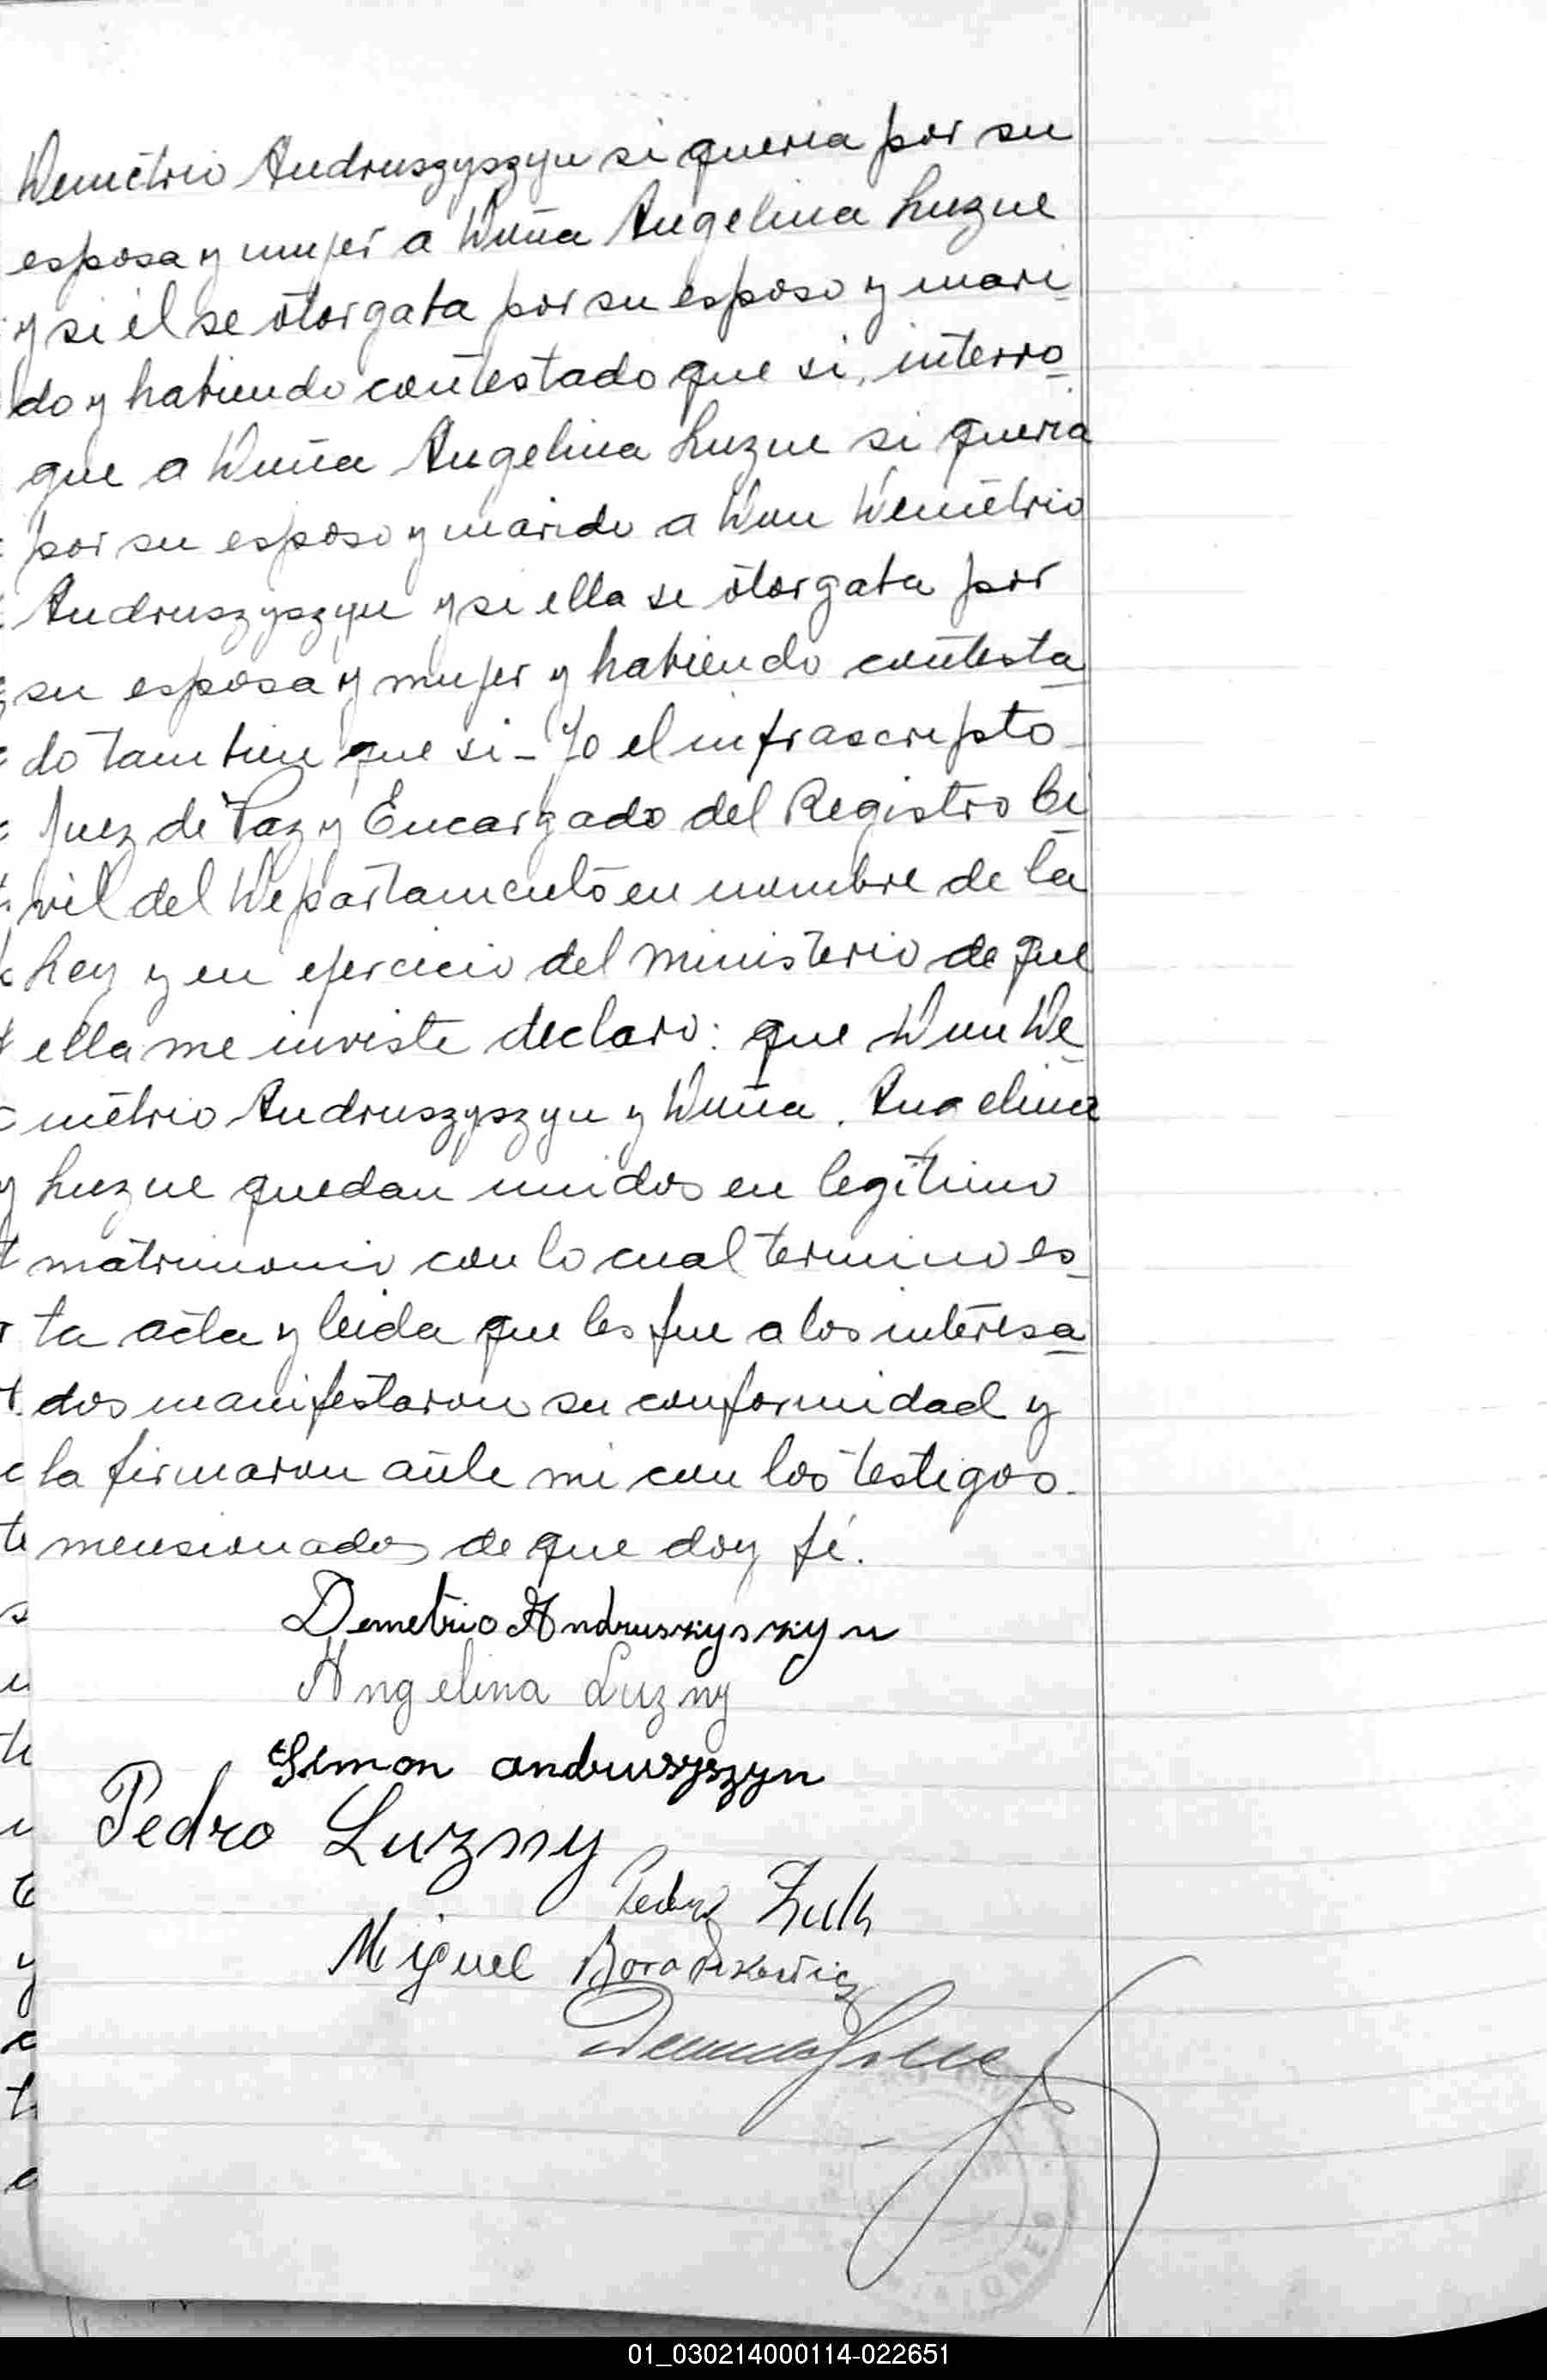 Demétrio Andruszyszyn si queria por su
esposa y mujer a Doña Angelina Luzne
y si él se otorgaba por su esposo y mari
do y habiendo contestado que si, interro
gue a Doña Angelina Luzne si queria
por su esposo y marido a Don Demétrio
Andruszyszyn y si ella se otorgaba por
su esposa y mujer y habiendo contesta
do tambien que si - Yo el infrascripto
Juez de Paz y Encargado del Registro Ci
vil del Departamento en nombre de la
Ley y en ejercicio del ministerio de que
ella me inviste declaro: que Don De
métrio Andruszyszyn y Doña. Angelina
Luzne quedan unidos en legitimo
matrimonio con lo cual termino es
ta acta y leida que les fue a los interesa
dos manifestaron su conformidad y
la firmaron ante mi con los testigos
mensionados de que doy fé.
Demetrio Andruszyszyn
Angelina Luzny
Simon andruszyszyn
Pedro Luzny
Pedro Zuk
Miguel
MISIONES
01_030214000114-022651